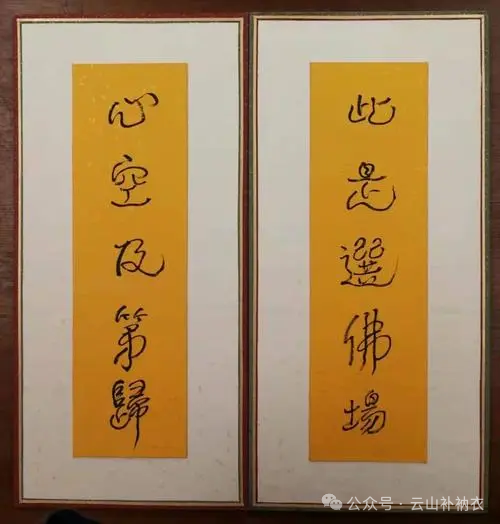 此是選佛場
心空及第歸
公众号·云山补衲衣